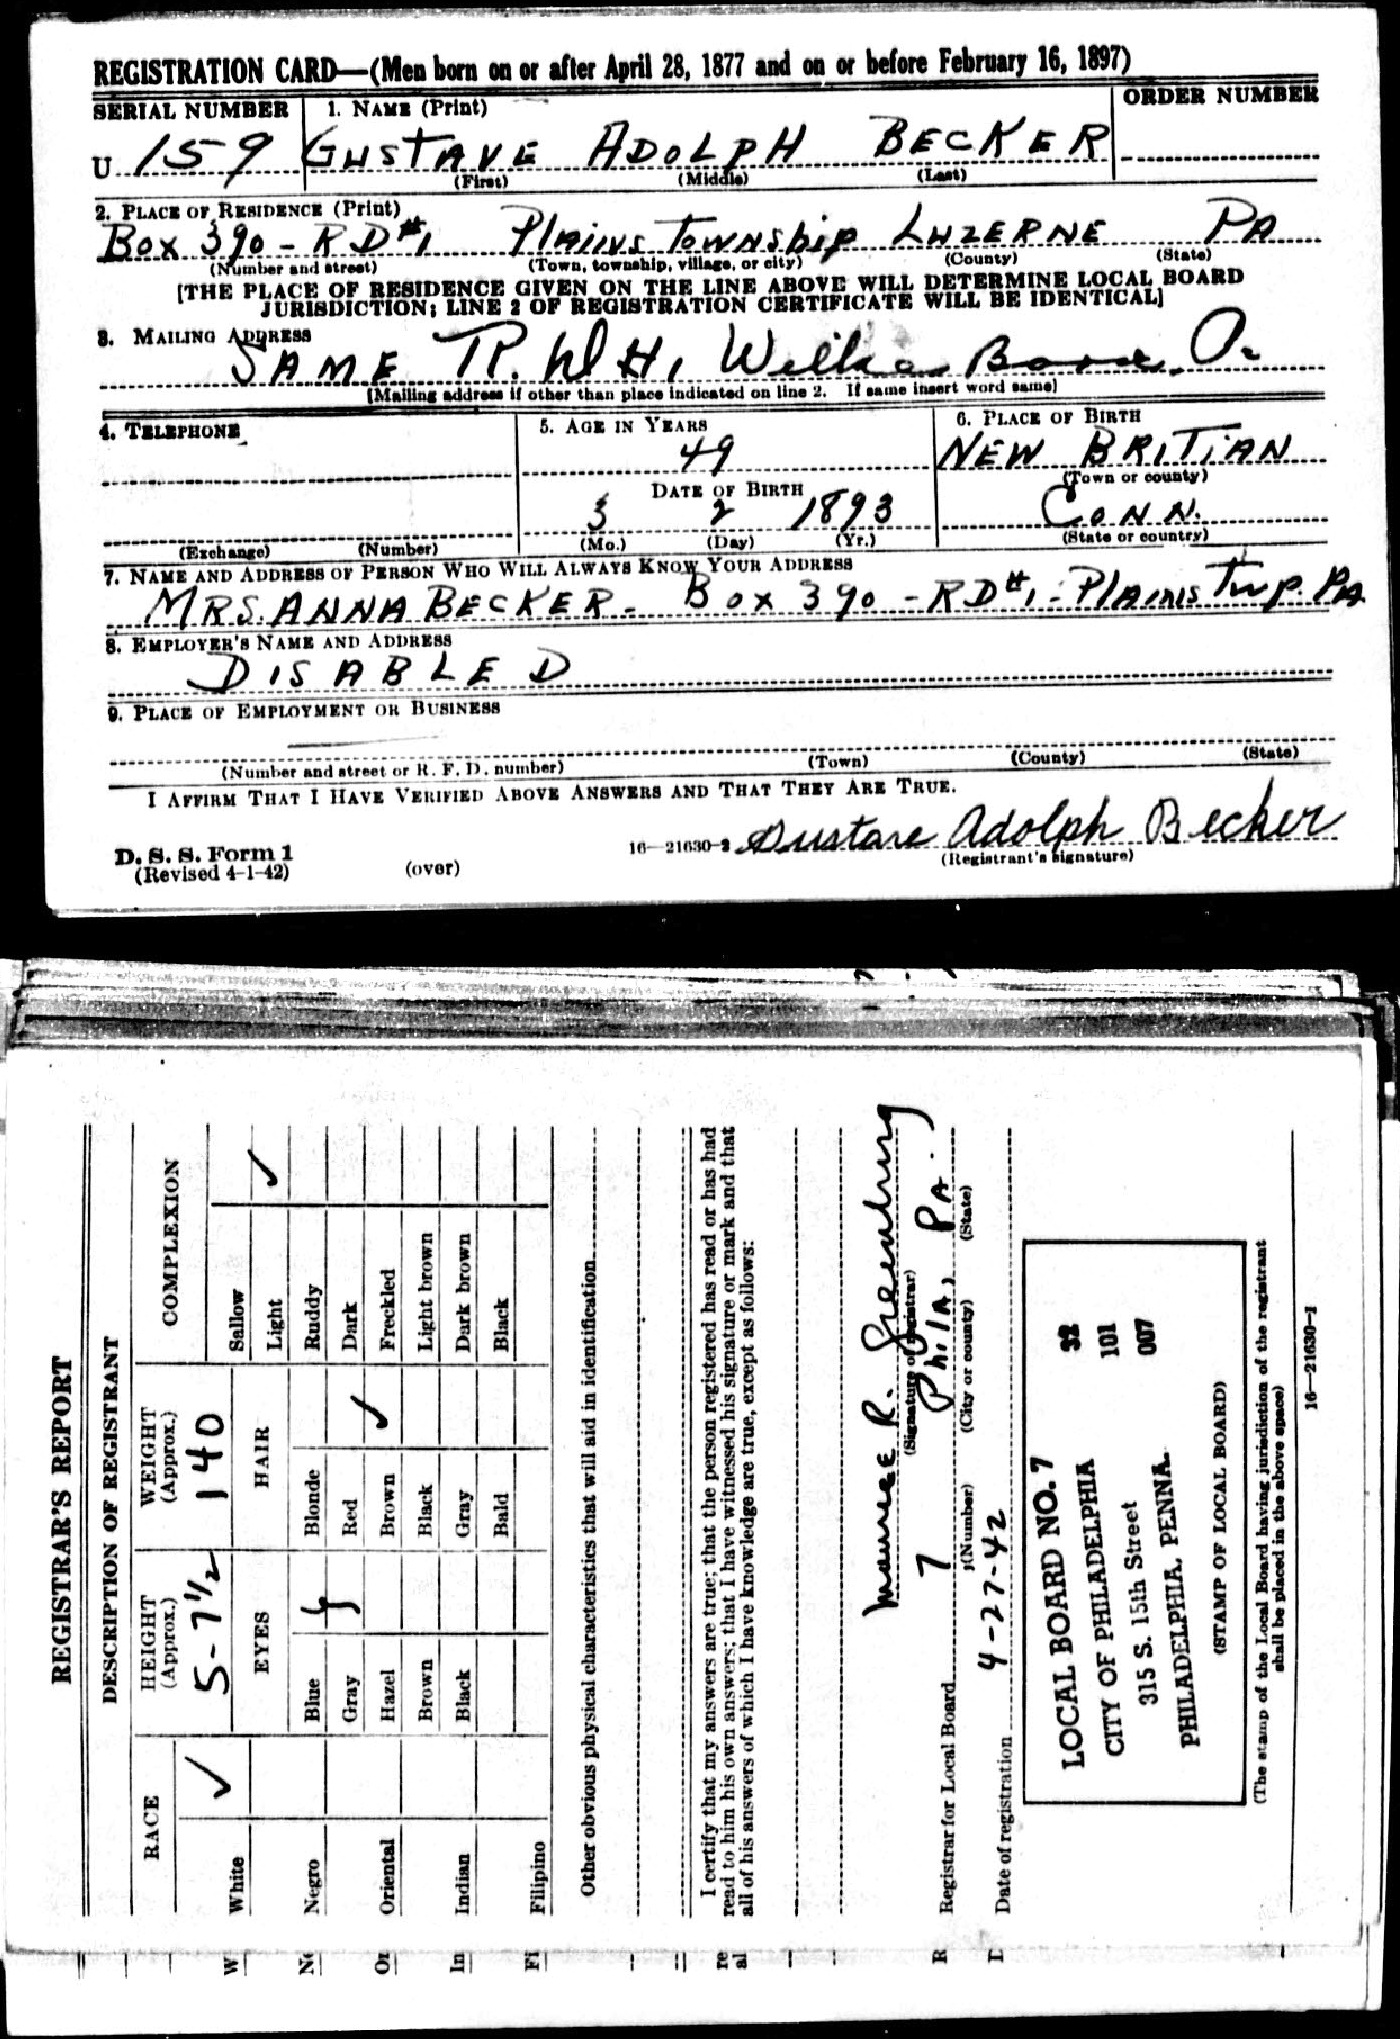 REGISTRATION CARD—(Men born on or after April 28, 1877 and on or before February 16, 1897)
SERIAL NUMBER 1. NAME (Print) ORDER NUMBER
U 159 GUSTAVE ADOLPH BECKER
(First) (Middle) (Last)
2. PLACE OF RESIDENCE (Print)
Box 390 - RD#1 Plains Township LUZERNE PA
(Number and street) (Town, township, village, or city) (County) (State)
[THE PLACE OF RESIDENCE GIVEN ON THE LINE ABOVE WILL DETERMINE LOCAL BOARD
JURISDICTION; LINE 2 OF REGISTRATION CERTIFICATE WILL BE IDENTICAL]
3. MAILING ADDRESS
SAME R. D #1 Wilkes Barre
[Mailing address if other than place indicated on line 2. If same insert word same]
4. TELEPHONE 5. AGE IN YEARS 6. PLACE OF BIRTH
49 NEW BRITIAN
(Town or county)
DATE OF BIRTH
3 2 1893 CONN.
(Exchange) (Number) (Mo.) (Day) (Yr.) (State or country)
7. NAME AND ADDRESS OF PERSON WHO WILL ALWAYS KNOW YOUR ADDRESS
MRS. ANNA BECKER - Box 390 - RD#1 - Plains Twp PA
8. EMPLOYER'S NAME AND ADDRESS
DISABLED
9. PLACE OF EMPLOYMENT OR BUSINESS
(Number and street or R. F. D. number) (Town) (County) (State)
I AFFIRM THAT I HAVE VERIFIED ABOVE ANSWERS AND THAT THEY ARE TRUE.
D. S. S. Form 1
(Revised 4-1-42) (over) 16—21630-2 Gustave Adolph Becker
(Registrant's signature)
REGISTRAR'S REPORT
DESCRIPTION OF REGISTRANT
RACE HEIGHT (Approx.) WEIGHT (Approx.) COMPLEXION
5-7 1/2 140
White ✓ EYES HAIR Sallow
Light ✓
Negro Blue ✓ Blonde Ruddy
Gray Red Dark
Oriental Hazel Brown ✓ Freckled
Brown Black Light brown
Indian Black Gray Dark brown
Bald Black
Filipino
Other obvious physical characteristics that will aid in identification
I certify that my answers are true; that the person registered has read or has had
read to him his own answers; that I have witnessed his signature or mark and that
all of his answers of which I have knowledge are true, except as follows:
Maurice R. Greenburg
(Signature of registrar)
Registrar for Local Board 7 Phila, PA.
(Number) (City or county) (State)
Date of registration 4-27-42
LOCAL BOARD NO. 7 32
CITY OF PHILADELPHIA 101
315 S. 15th Street 007
PHILADELPHIA, PENNA.
(STAMP OF LOCAL BOARD)
(The stamp of the Local Board having jurisdiction of the registrant
shall be placed in the above space)
16—21630-2